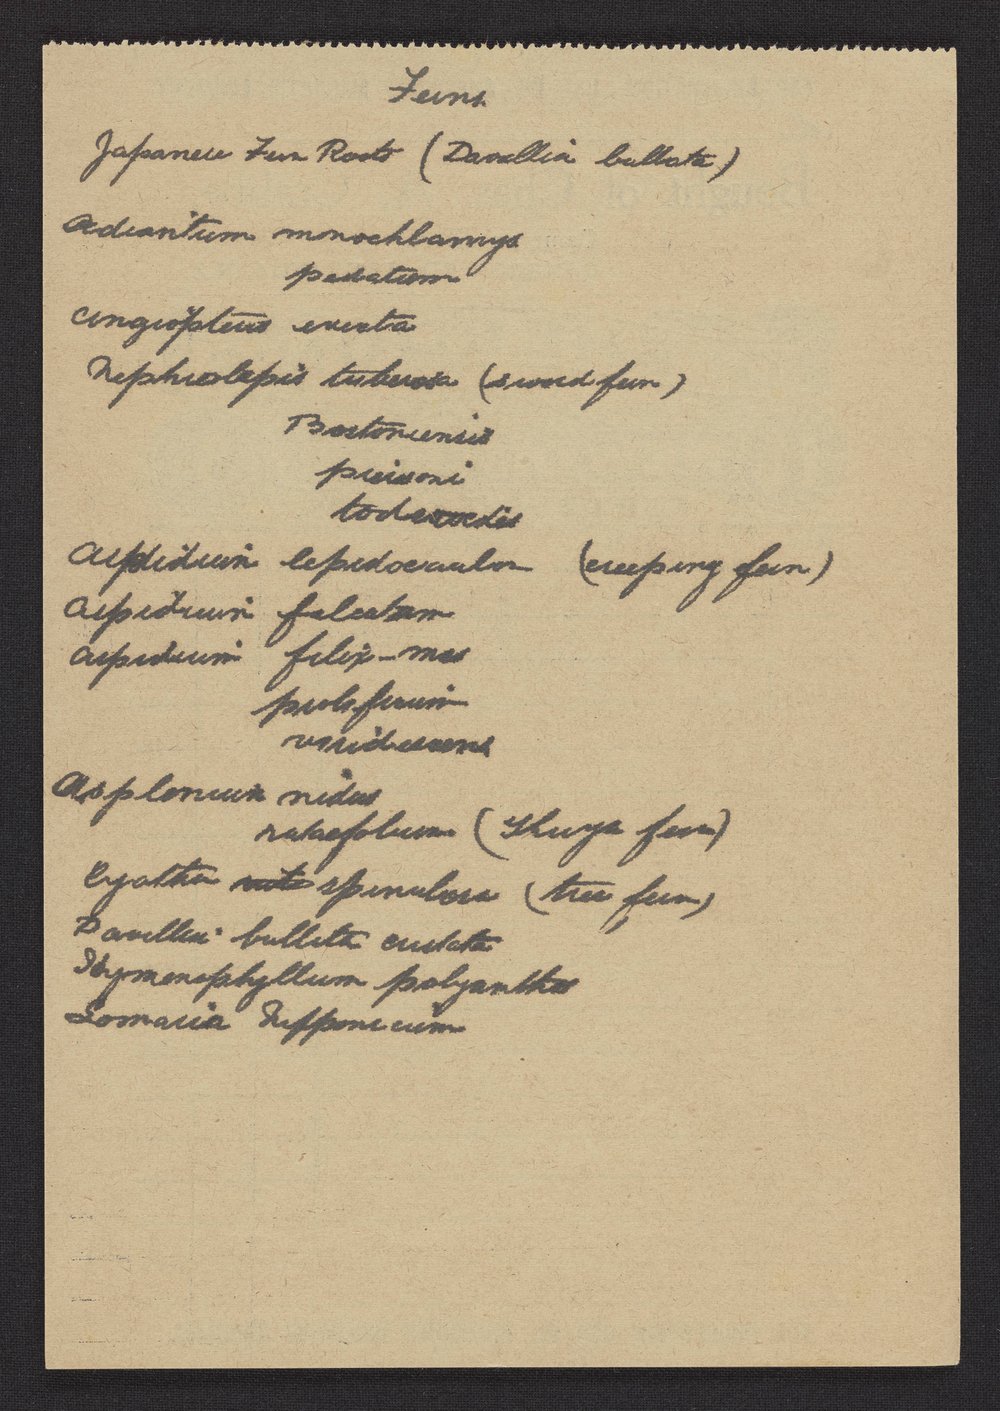 Ferns
Japanese Fern Roots (Davallia bullata)
Adiantum monochlamys
pedatum
Angiopteris evecta
Nephrolepis tuberosa (sword fern)
Bostoniensis
piersoni
todeaoedes
Aspidium lepidocaulon (creeping fern)
Aspidium falcatum
Aspidium felix-mas
proliferum
viridescens
Asplenium nidus
rutaefolium (Thuya fern)
Cyathea spinulosa (tree fern)
Davallia bullata cristata
Hymenophyllum polyanthos
Lomaria Nipponicum